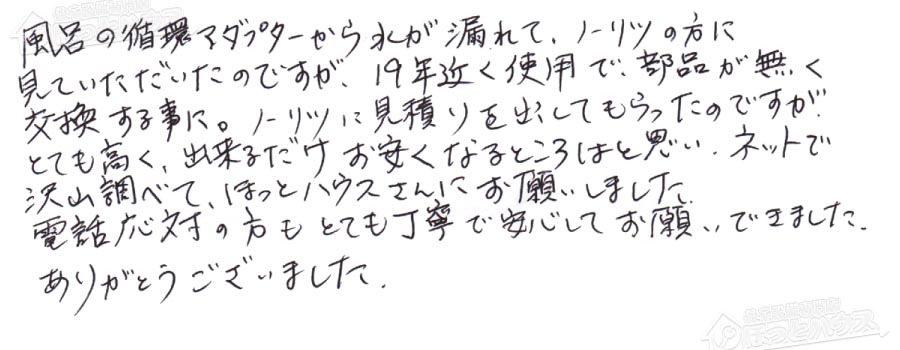 風呂の循環アダプターから水が漏れて、ノーリツの方に
見ていただいたのですが、19年近く使用で、部品が無く
交換する事に。ノーリツに見積りを出してもらったのですが、
とても高く、出来るだけお安くなるところはと思い、ネットで
沢山調べて、ほっとハウスさんにお願いしました。
電話応対の方もとても丁寧で安心してお願いできました。
ありがとうございました。
ほっとハウス